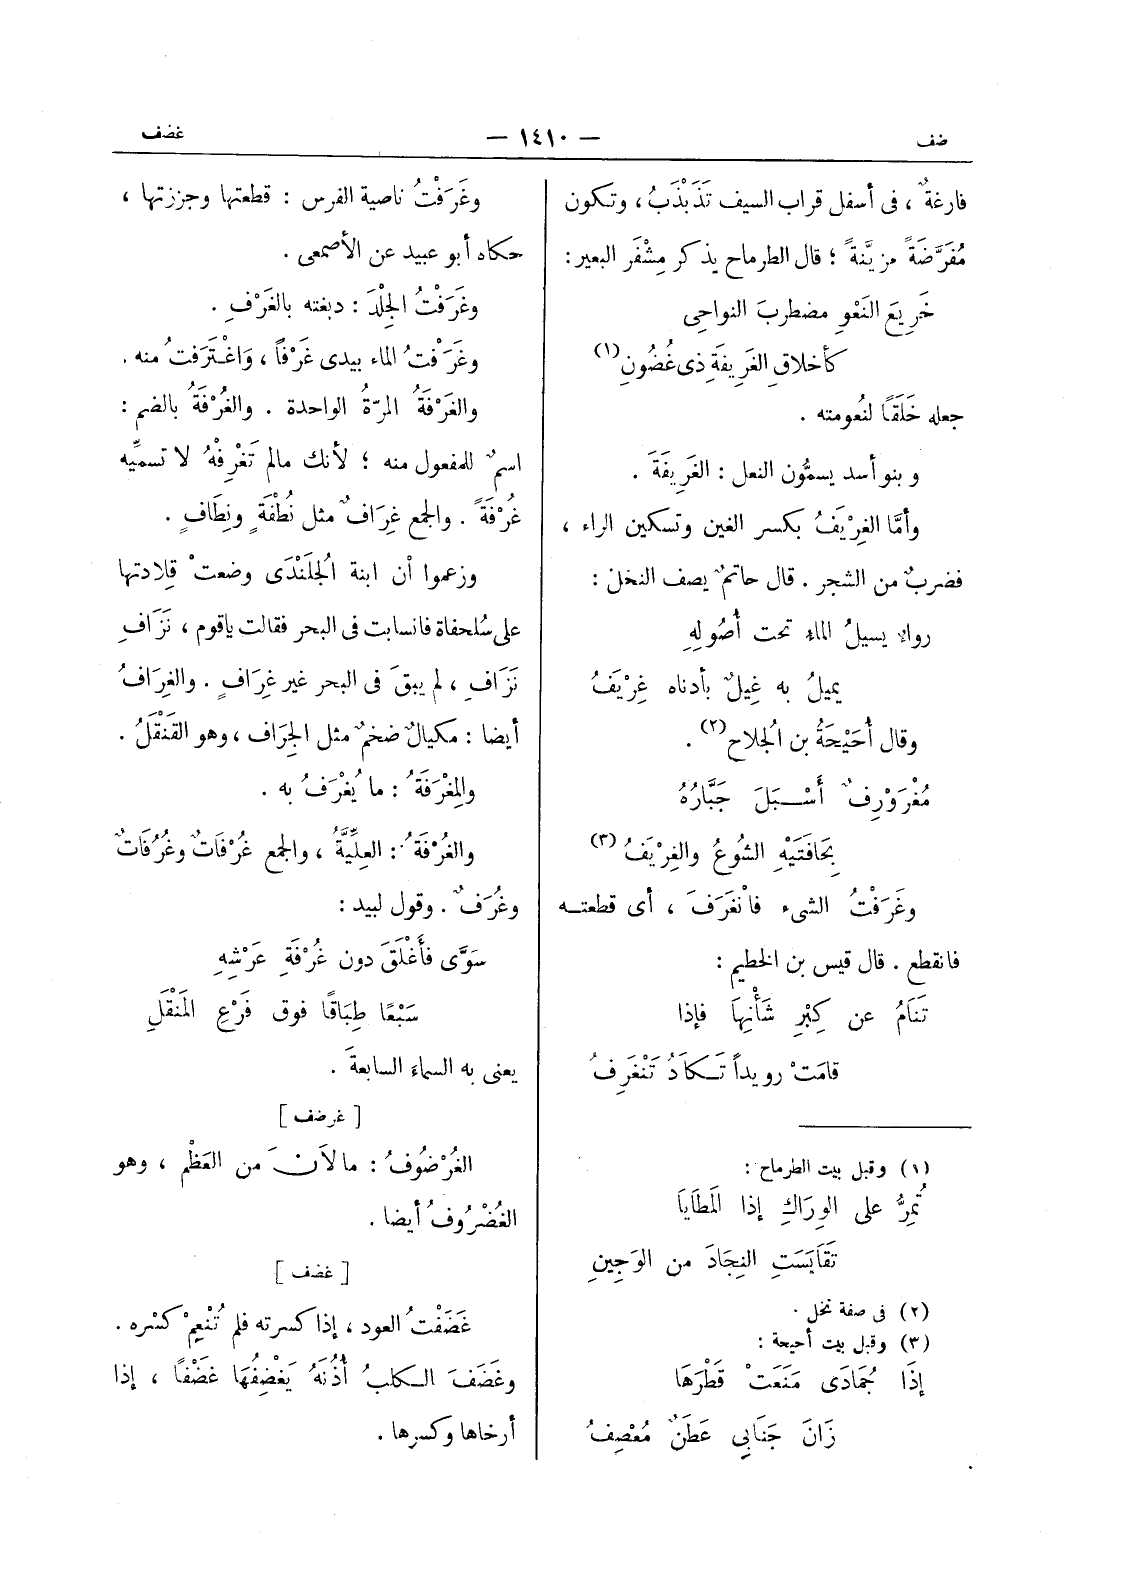 ضف
— ١٤١٠ —
غضف
فارغةٌ ، فى أسفل قراب السيف تَذَبْذَبُ ، وتكون
مُفَرَّضَةً مزيَّنةً ؛ قال الطرماح يذكر مِشْفَر البعير :
خَرِيعَ النَعْوِ مضطربَ النواحِى
كأخلاقِ الغَرِيفَةِ ذى غُضُونِ (١)
جعله خَلَقًا لنُعومته .
وبنو أسد يسمُّون النعل : الغَرِيفَةَ .
وأمَّا الغِرْيَفُ بكسر الغين وتسكين الراء ،
فضربٌ من الشجر . قال حاتمٌ يصف النخل :
رواء يسيلُ الماء تحت أُصُولِهِ
يميلُ به غِيلٌ بأدناه غِرْيَفُ
وقال أُحَيْحَةُ بن الجُلاح (٢) .
مُغْرَوْرِفٌ أَسْبَلَ جَبَّارُهُ
بِحَافَتَيْهِ الشُوعُ والغِرْيَفُ (٣)
وغَرَفْتُ الشىء فانْغَرَفَ ، أى قطعته
فانقطع . قال قيس بن الخطيم :
تَنَامُ عن كِبْرِ شَأْنِهَا فإذا
قامَتْ رويداً تَكَادُ تَنْغَرِفُ
(١) وقبل بيت الطرماح :
تُمِرُّ على الوِرَاكِ إذا المَطَايَا
تقَايَسَتِ النِجَادَ من الوَجِينِ
(٢) فى صفة نخل .
(٣) وقبل بيت أحيحة :
إذَا جُمَادَى مَنَعَتْ قَطْرَهَا
زَانَ جَنَابِي عَطَنٌ مُعْصِفُ
وغَرَفْتُ ناصية الفرس : قطعتها وجززتها ،
حكاه أبو عبيد عن الأصمعى .
وغَرَفْتُ الجِلْدَ : دبغته بالغَرْفِ .
وغَرَفْتُ الماء بيدى غَرْفاً ، وَاغْتَرَفتُ منه .
والغَرْفَةُ المرّةُ الواحدة . والغُرْفَةُ بالضم :
اسمٌ للمفعول منه ؛ لأنك مالم تَغْرِفْهُ لا تسمِّيه
غُرْفَةً . والجمع غِرَافٌ مثل نُطْفَةٍ ونِطَافٍ .
وزعموا أن ابنة الجُلَنْدَى وضعتْ قِلادتها
على سُلحفاة فانسابت فى البحر فقالت ياقوم ، نَزَافِ
نَزَافِ ، لم يبقَ فى البحر غير غِرَافٍ . والغِرَافُ
أيضا : مكيالٌ ضخمٌ مثل الجِرَاف ، وهو القَنْقَلُ .
والمِغْرَفَةُ : ما يُغْرَفُ به .
والغُرْفَةُ : العِلِّيَّةُ ، والجمع غُرْفَاتٌ وغُرُفَاتٌ
وغُرَفٌ . وقول لبيد :
سَوَّى فأَغْلَقَ دون غُرْفَةِ عَرْشِهِ
سَبْعًا طِبَاقًا فوق فَرْعِ المَنْقَلِ
يعنى به السماء السابعةَ .
[ غرضف ]
الغُرْضُوفُ : مالاَنَ من العَظْم ، وهو
الغُضْرُوفُ أيضا .
[ غضف ]
غَضَفْتُ العود ، إذا كسرته فلم تُنْعِمْ كسْره .
وغَضَفَ الكلبُ أُذُنَهُ يَغْضِفُهَا غَضْفًا ، إذا
أرخاها وكسرها .